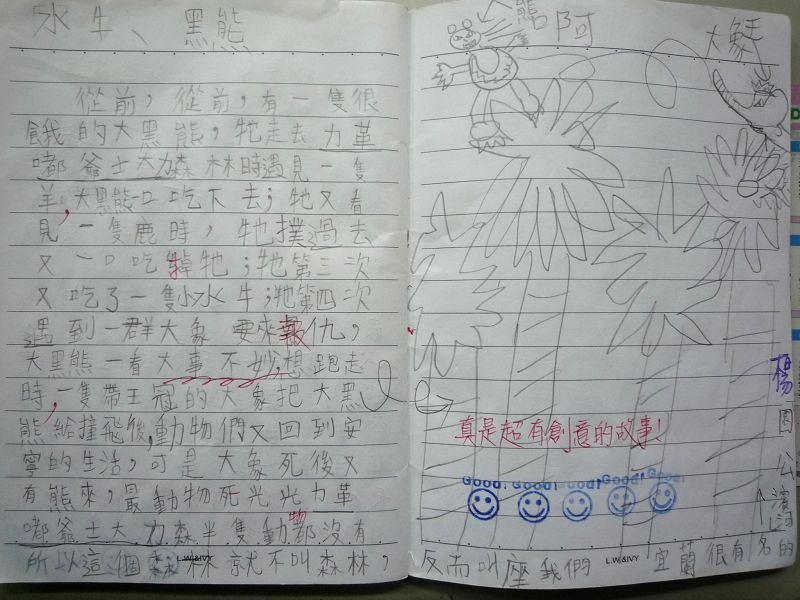 水牛、黑熊
從前，從前，有一隻很
餓的大黑熊，牠走去力革
嘟爺士大力森林時遇見一隻
羊，大黑熊一口吃下去；牠又看
見一隻鹿時，牠撲過去
又一口吃掉牠；牠第三次
又吃了一隻小水牛；牠第四次
遇到一群大象要來報仇，
大黑熊一看大事不妙，想跑走
時，一隻帶王冠的大象把大黑
熊給撞飛後，動物們又回到安
寧的生活，可是大象死後又
有熊來，最動物死光光力革
嘟爺士大力森半隻動物都沒有
所以這個森林就不叫森林，
L.W.&IVY
熊阿
大象王
真是超有創意的故事！
Good! Good! Good! Good! Good!
反而叫座我們宜蘭很有名的
L.W.&IVY
楊
園公